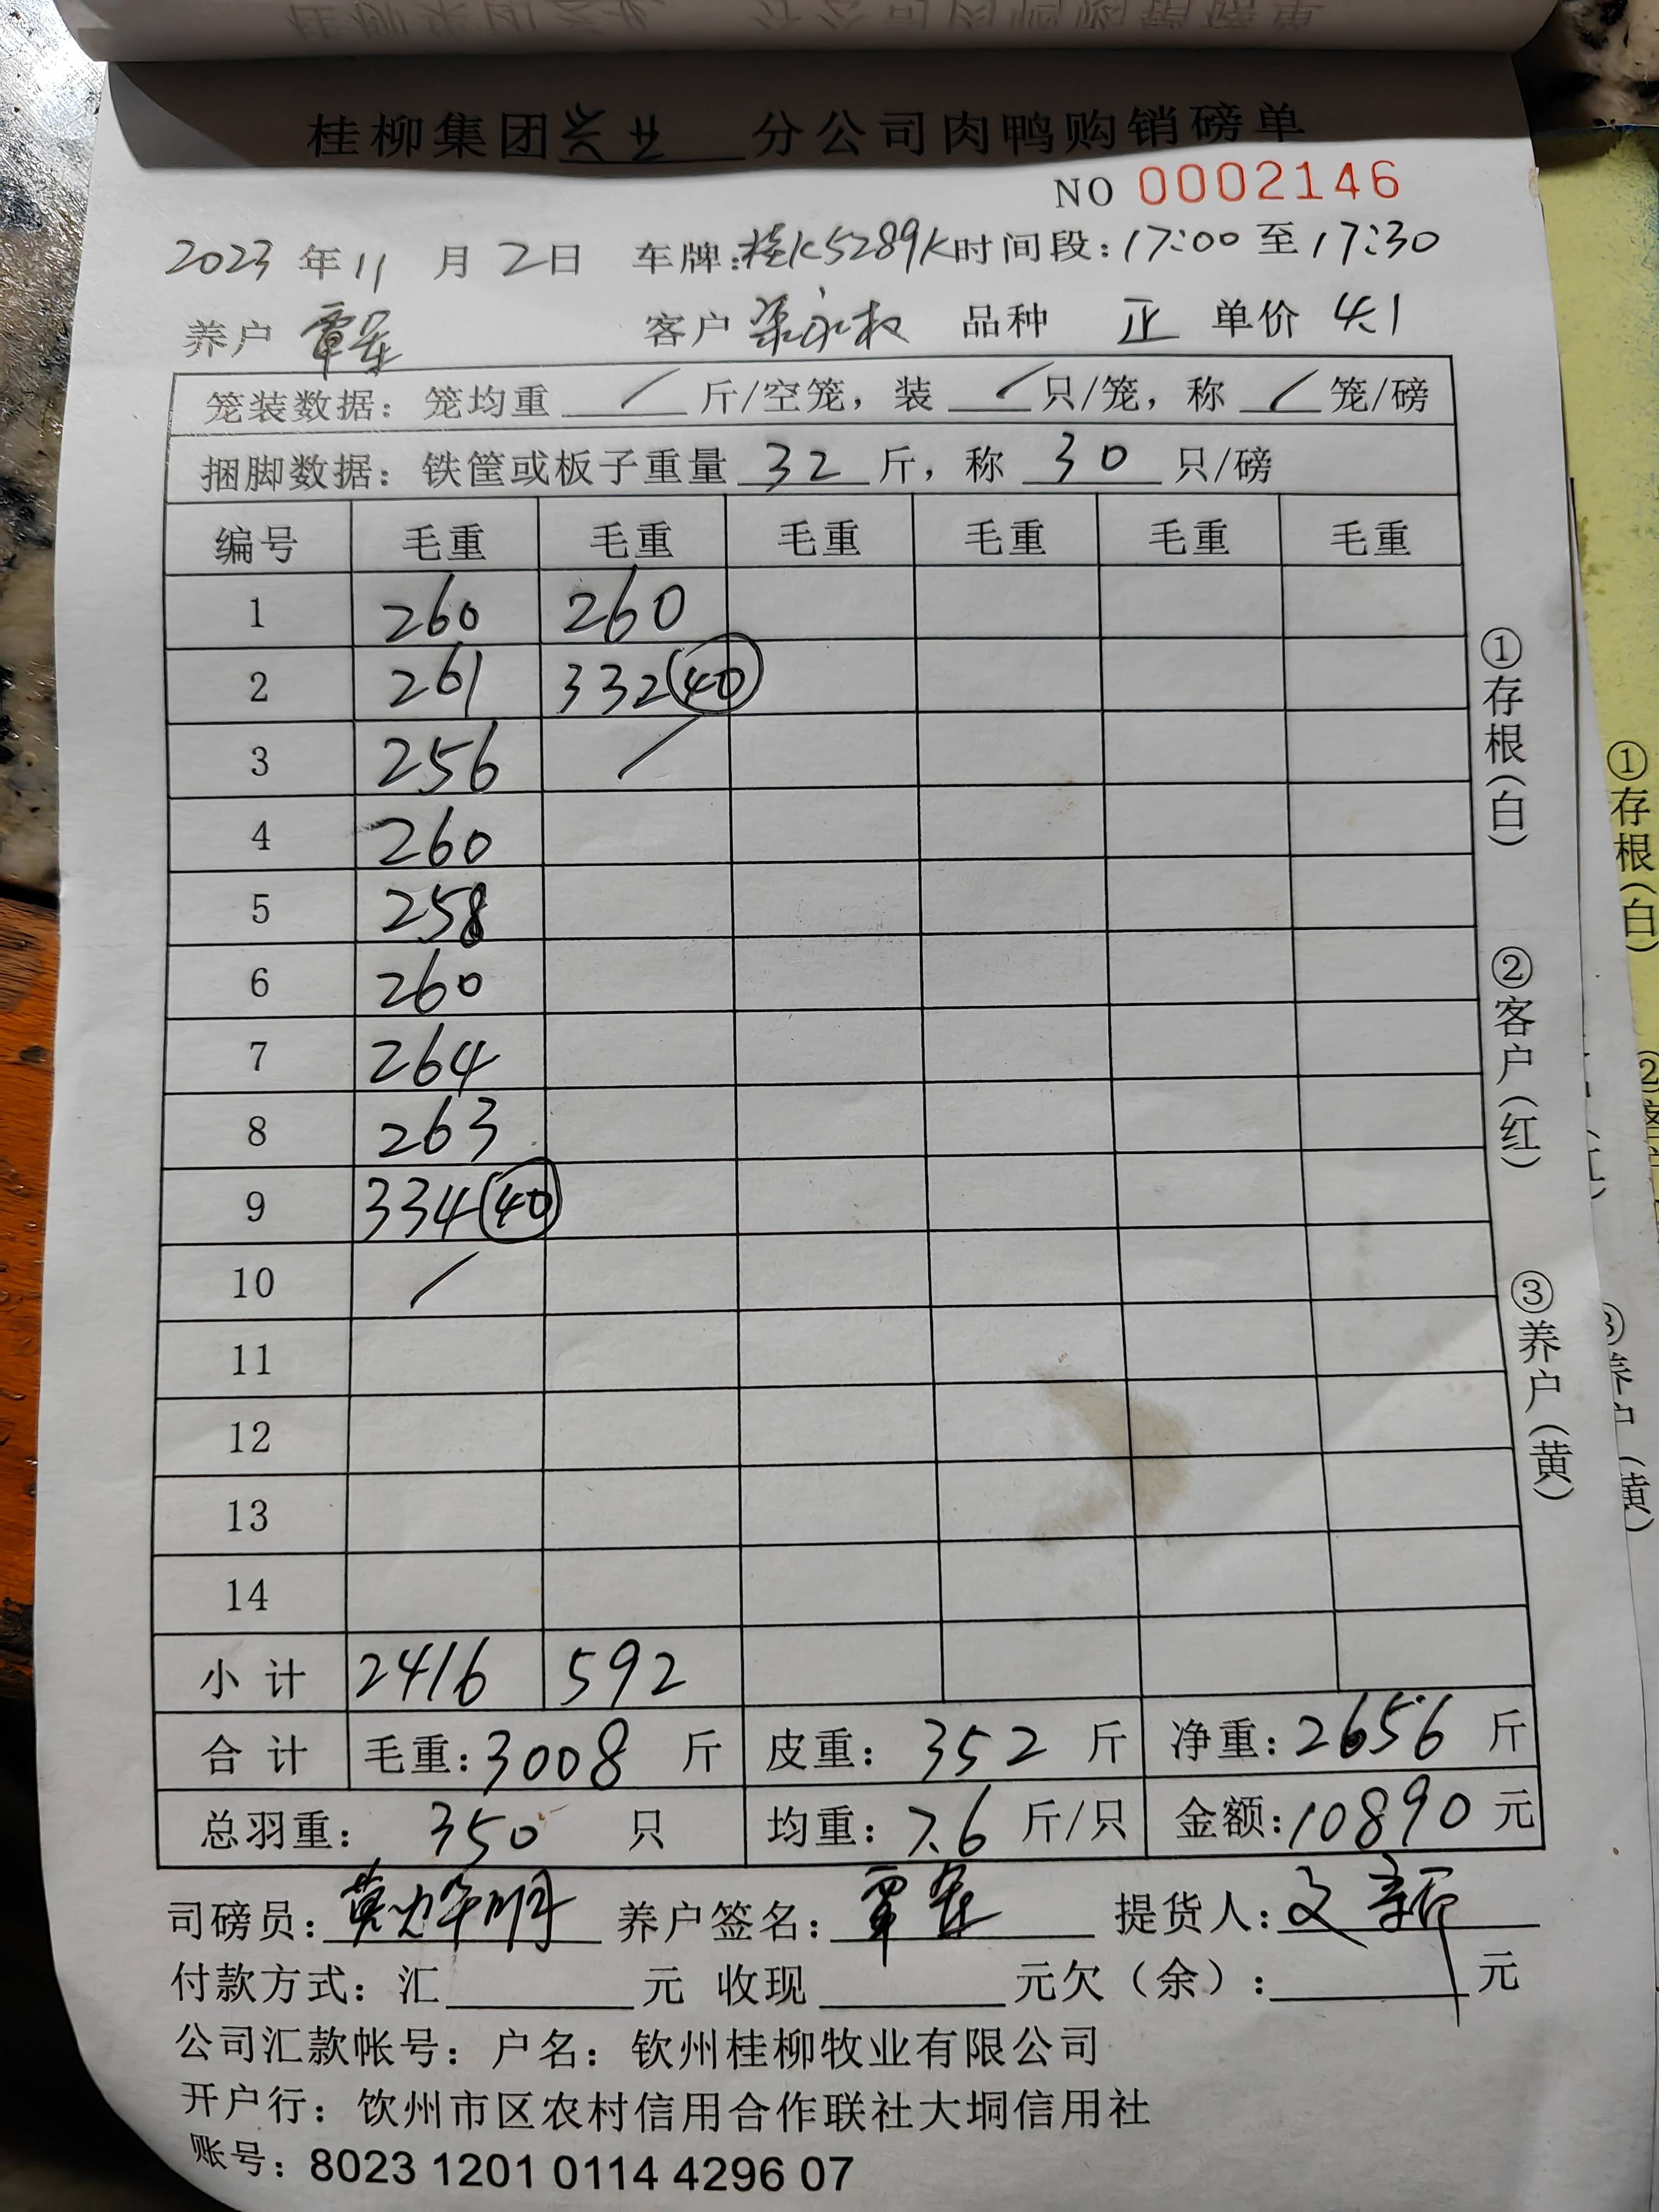 桂柳集团兴业分公司肉鸭购销磅单
NO 0002146
2023年11月2日 车牌:桂K5289K时间段:17:00至17:30
养户 覃 客户 梁永权 品种 正 单价 4.1
笼装数据:笼均重 / 斤/空笼,装 / 只/笼,称 / 笼/磅
捆脚数据:铁筐或板子重量 32 斤,称 30 只/磅
编号 毛重 毛重 毛重 毛重 毛重 毛重
1 260 260
2 261 332(40)
3 256 /
4 260
5 258
6 260
7 264
8 263
9 334(40)
10 /
11
12
13
14
小计 2416 592
合计 毛重:3008斤 皮重:352斤 净重:2656斤
总羽重:350只 均重:7.6斤/只 金额:10890元
司磅员: 养户签名:覃 提货人:文新
付款方式:汇 元 收现 元欠(余): 元
公司汇款帐号:户名:钦州桂柳牧业有限公司
开户行:饮州市区农村信用合作联社大垌信用社
账号:8023 1201 0114 4296 07
①存根(白) ②客户(红) ③养户(黄)
①存根(白)